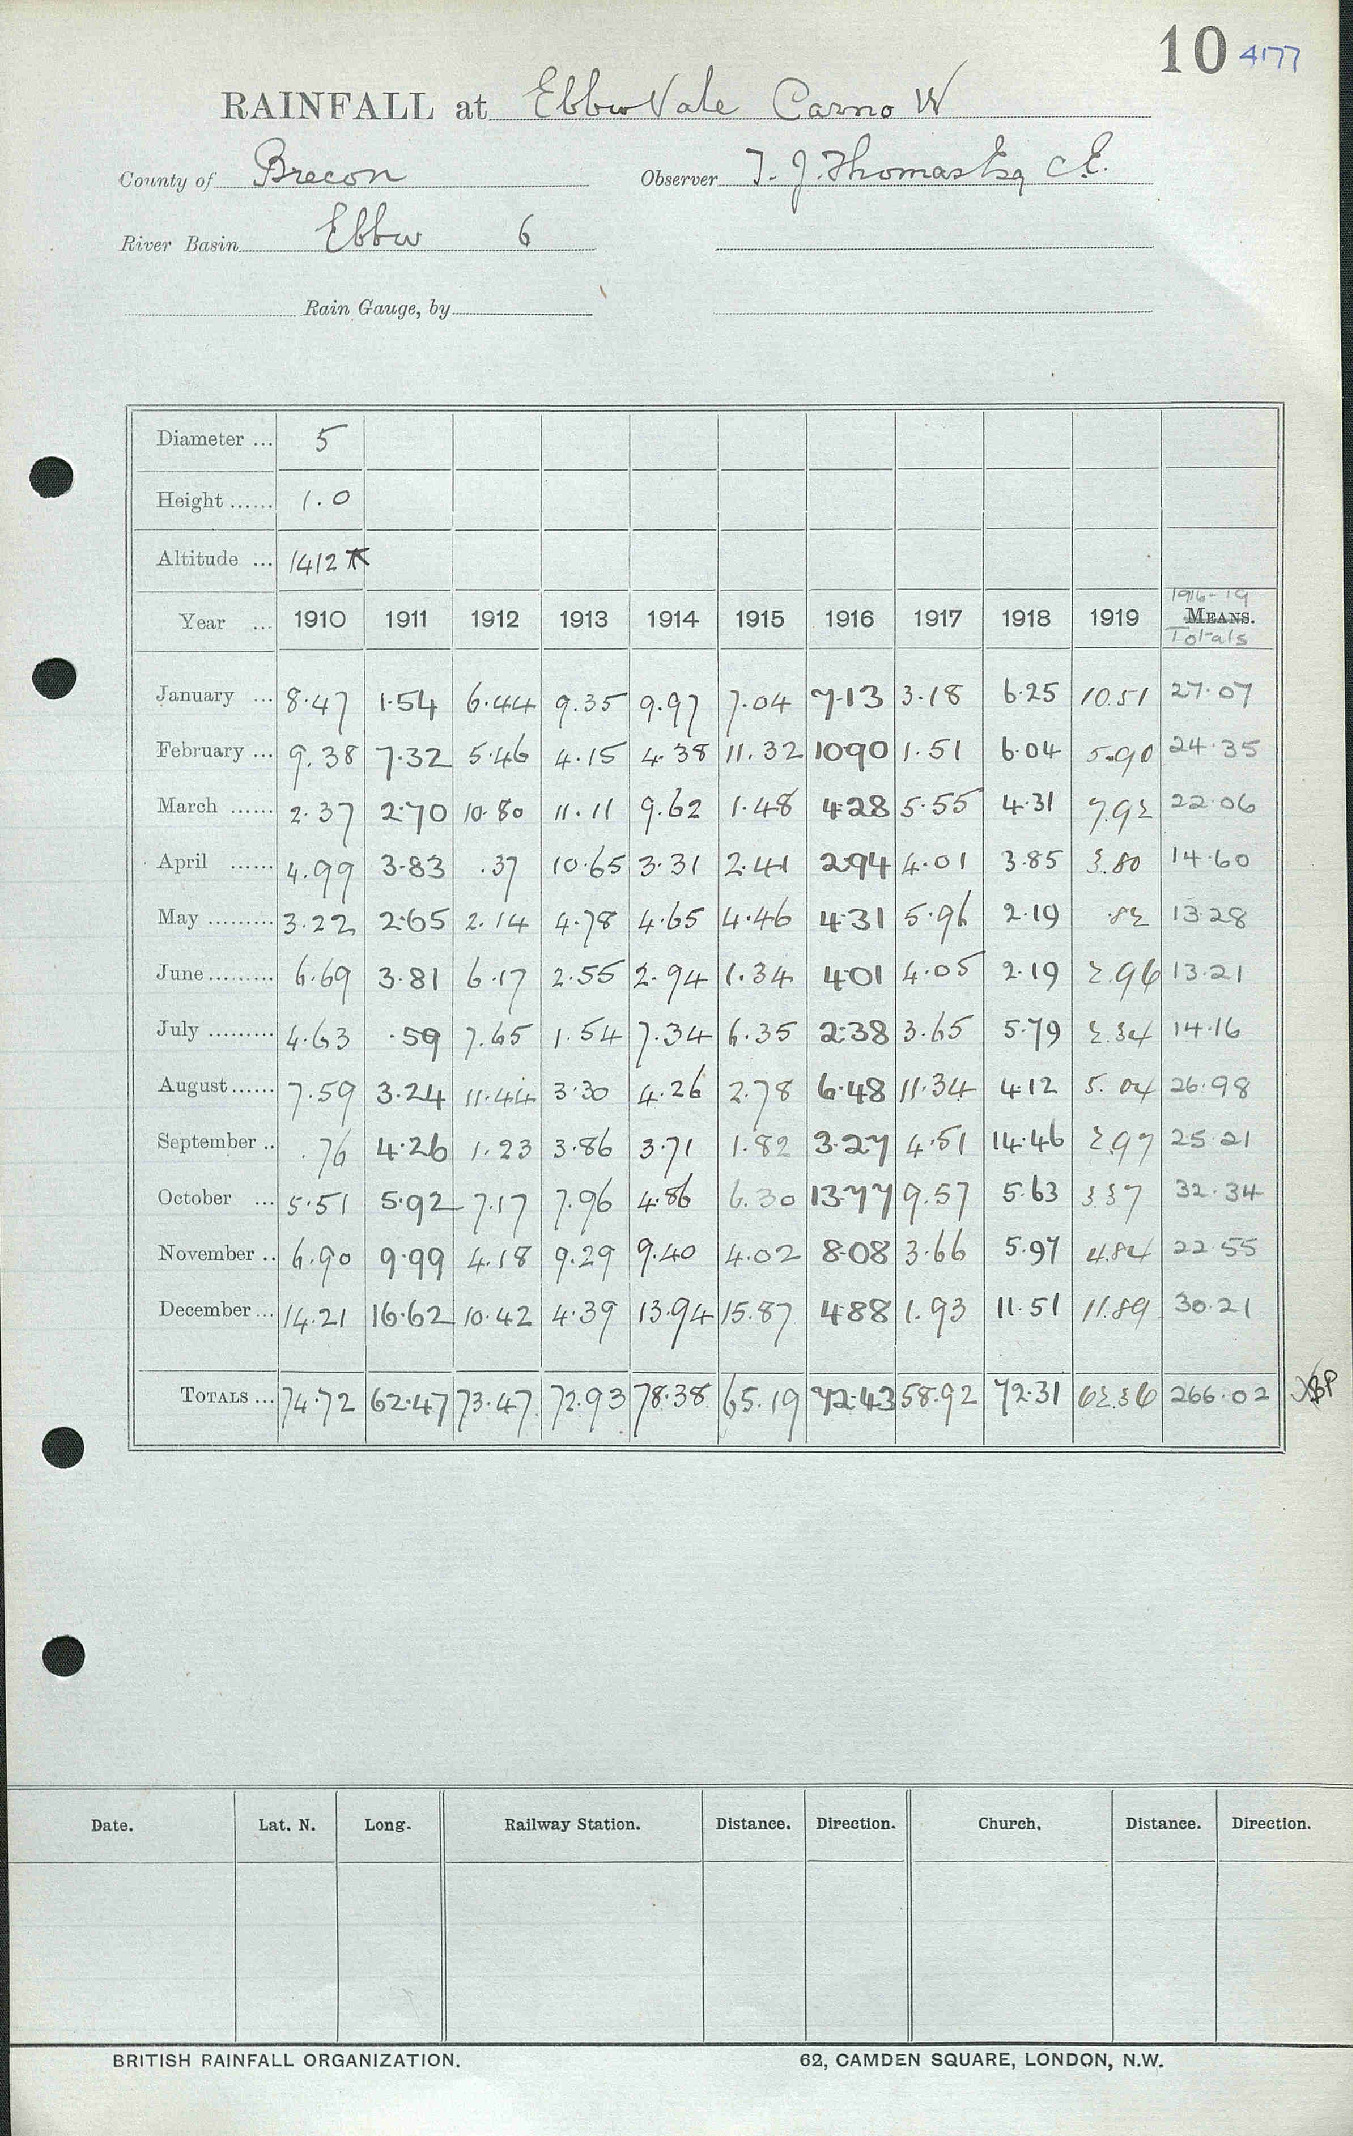 10 4177
RAINFALL at Ebbw Vale Carno W
County of Brecon Observer T. J. Thomas Esq C.E.
River Basin Ebbw 6
Rain Gauge, by
Diameter ... 5
Height ...... 1.0
Altitude ... 1412
1916-19
Year ... 1910 1911 1912 1913 1914 1915 1916 1917 1918 1919 MEANS.
Totals
January ... 8.47 1.54 6.44 9.35 9.97 7.04 7.13 3.18 6.25 10.51 27.07
February ... 9.38 7.32 5.46 4.15 4.38 11.32 10.90 1.51 6.04 5.90 24.35
March ...... 2.37 2.70 10.80 11.11 9.62 1.48 4.28 5.55 4.31 7.92 22.06
April ...... 4.99 3.83 .37 10.65 3.31 2.41 2.94 4.01 3.85 3.80 14.60
May ......... 3.22 2.65 2.14 4.78 4.65 4.46 4.31 5.96 2.19 .82 13.28
June ......... 6.69 3.81 6.17 2.55 2.94 1.34 4.01 4.05 2.19 2.96 13.21
July ......... 4.63 .59 7.65 1.54 7.34 6.35 2.38 3.65 5.79 2.34 14.16
August ...... 7.59 3.24 11.44 3.30 4.26 2.78 6.48 11.34 4.12 5.04 26.98
September .. .76 4.26 1.23 3.86 3.71 1.82 3.27 4.51 14.46 2.97 25.21
October ... 5.51 5.92 7.17 7.96 4.86 6.30 13.77 9.57 5.63 3.37 32.34
November .. 6.90 9.99 4.18 9.29 9.40 4.02 8.08 3.66 5.97 4.84 22.55
December ... 14.21 16.62 10.42 4.39 13.94 15.87 4.88 1.93 11.51 11.89 30.21
TOTALS ... 74.72 62.47 73.47 72.93 78.38 65.19 72.43 58.92 72.31 62.36 266.02
Date. Lat. N. Long. Railway Station. Distance. Direction. Church. Distance. Direction.
BRITISH RAINFALL ORGANIZATION. 62, CAMDEN SQUARE, LONDON, N.W.